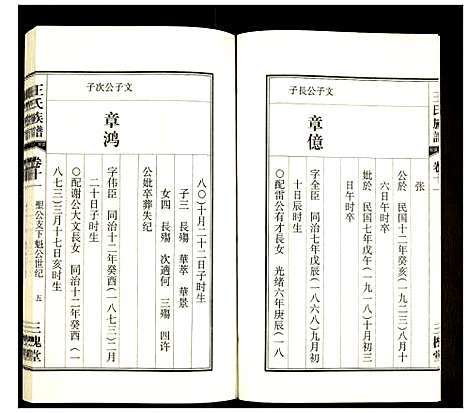 王氏族譜
卷十一
三槐堂
張
公於 民国十一年癸亥(一九二三)八月十
六日午時卒
妣於 民国七年戊午(一九一八)十月初三
日午时卒
文子公長子
章億
字全臣 同治七年戊辰(一八六八)九月初三
日午时生
○配雷公有才長女 光緒六年庚辰(一八
八○)十月二十二日子时生
子三 長殤 華萃 華景
女四 長殤 次適何 三殤 四许
公妣卒葬失纪
文子公次子
章鸿
字伟臣 同治十二年癸酉(一八七三)二月
二十日子时生
○配谢公大文長女 同治十二年癸酉(一
八七三)三月十七日亥时生
王氏族譜
卷十一
聖公支下魁公世纪
五
三槐堂